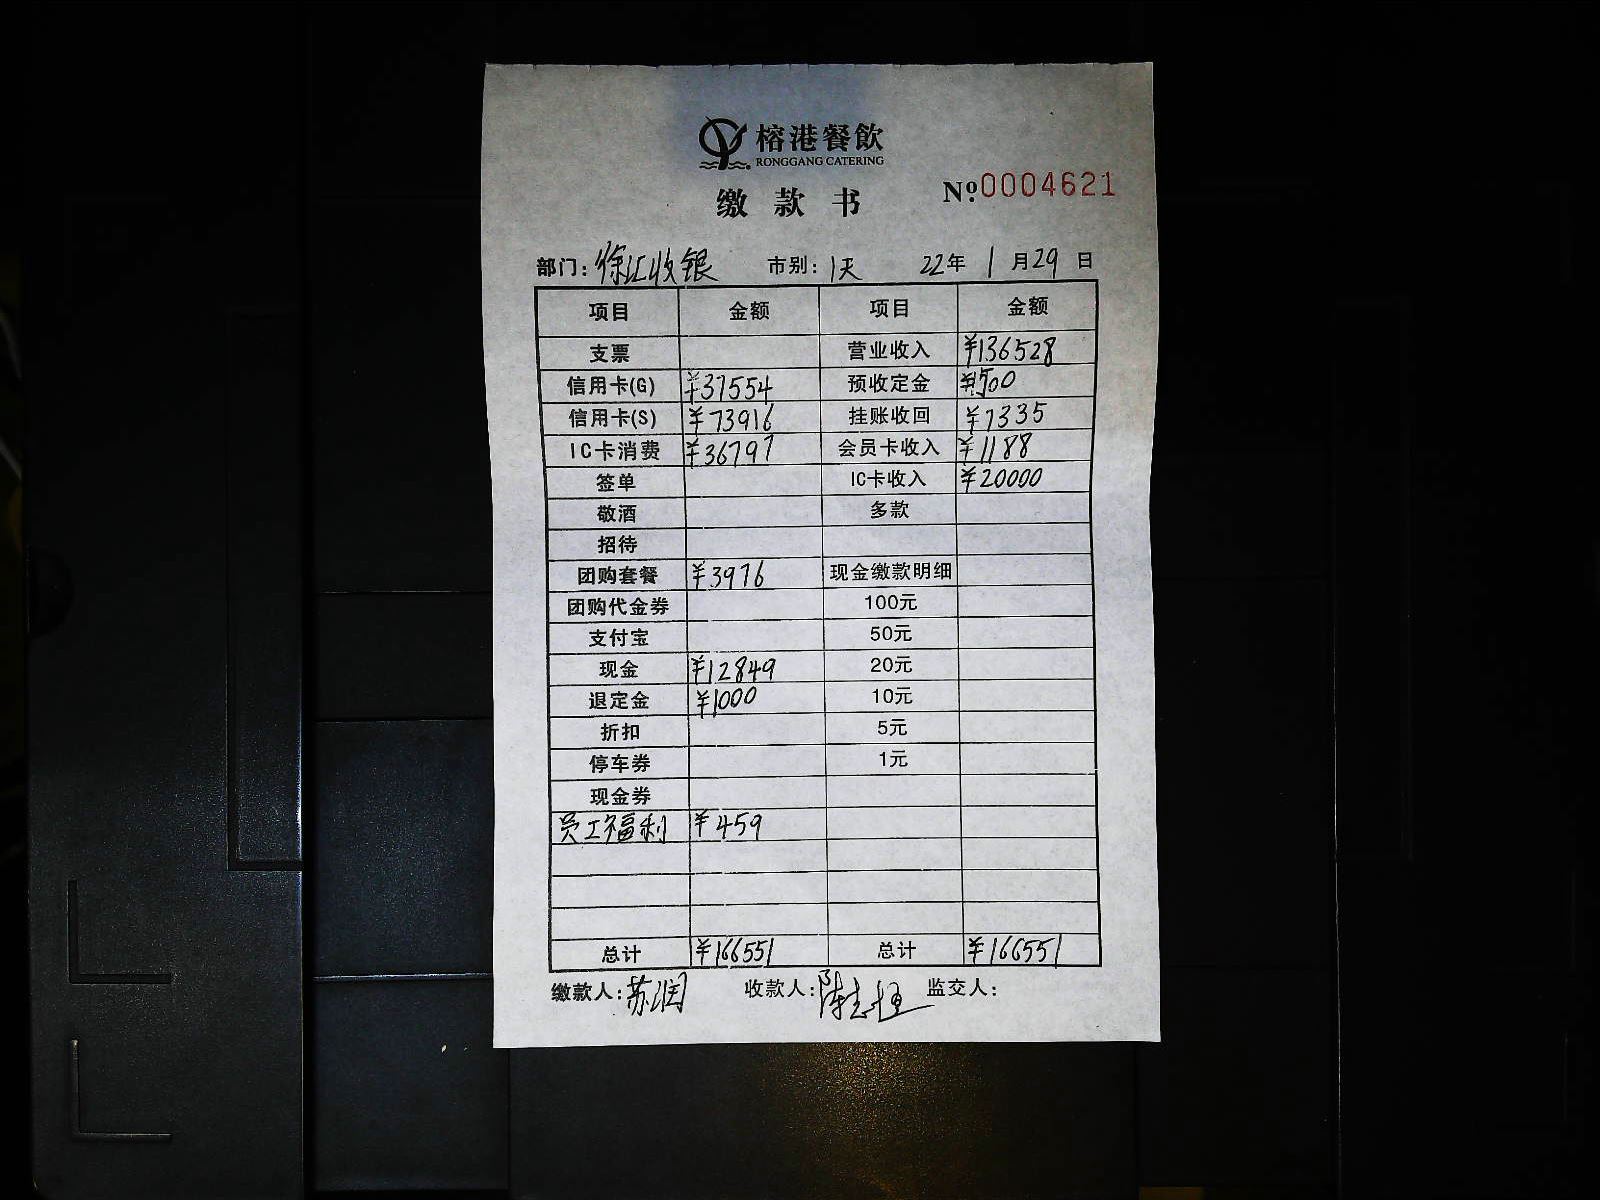 榕港餐飲
RONGGANG CATERING
缴款书
№0004621
部门：徐汇收银 市别：1天 22年1月29日
项目 金额 项目 金额
支票 营业收入 ¥136528
信用卡(G) ¥37554 预收定金 ¥1500
信用卡(S) ¥73916 挂账收回 ¥7335
IC卡消费 ¥36797 会员卡收入 ¥1188
签单 IC卡收入 ¥20000
敬酒 多款
招待
团购套餐 ¥3976 现金缴款明细
团购代金券 100元
支付宝 50元
现金 ¥12849 20元
退定金 ¥1000 10元
折扣 5元
停车券 1元
现金券
员工福利 ¥459
总计 ¥166551 总计 ¥166551
缴款人：苏润 收款人：陈志恒 监交人：